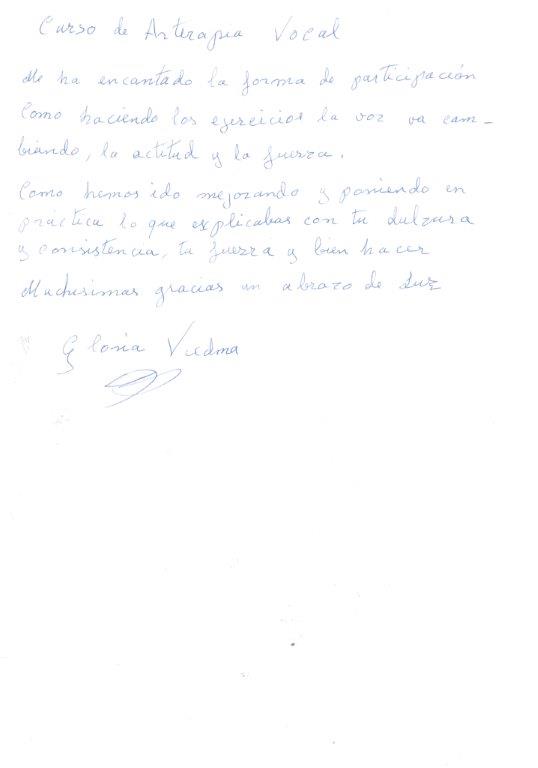 Curso de Arterapia Vocal
Me ha encantado la forma de participación
Como haciendo los ejercicios la voz va cam-
biando, la actitud y la fuerza.
Como hemos ido mejorando y poniendo en
práctica lo que explicabas con tu dulzura
y consistencia, tu fuerza y bien hacer
Muchisimas gracias un abrazo de Luz
Gloria Viedma